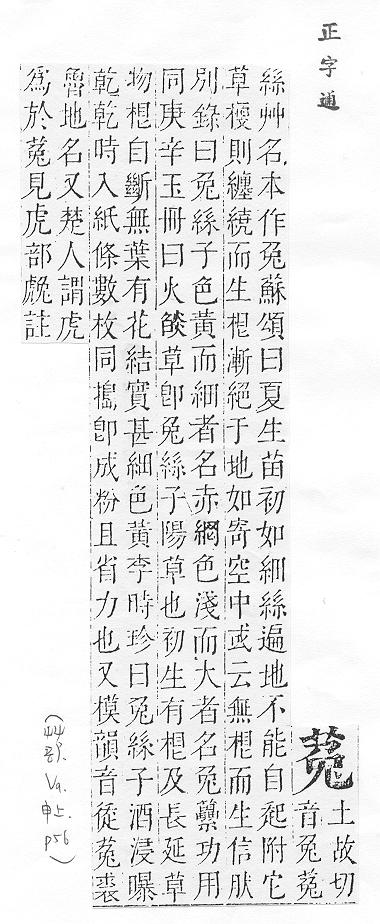 正字通
菟
土故切
音兔菟
絲艸名本作兔蘇頌曰夏生苗初如細絲遍地不能自起附它
草梗則纏繞而生根漸絕于地如寄空中或云無根而生信肰
別錄曰兔絲子色黃而細者名赤網色淺而大者名兔虆功用
同庚辛玉冊曰火燄草卽兔絲子陽草也初生有根及長延草
物根自斷無葉有花結實甚細色黃李時珍曰兔絲子酒浸曝
乾乾時入紙條數枚同搗卽成粉且省力也又模韻音徒菟裘
魯地名又楚人謂虎
爲於菟見虎部䖘註
(艸部. Va. 申上. p56)